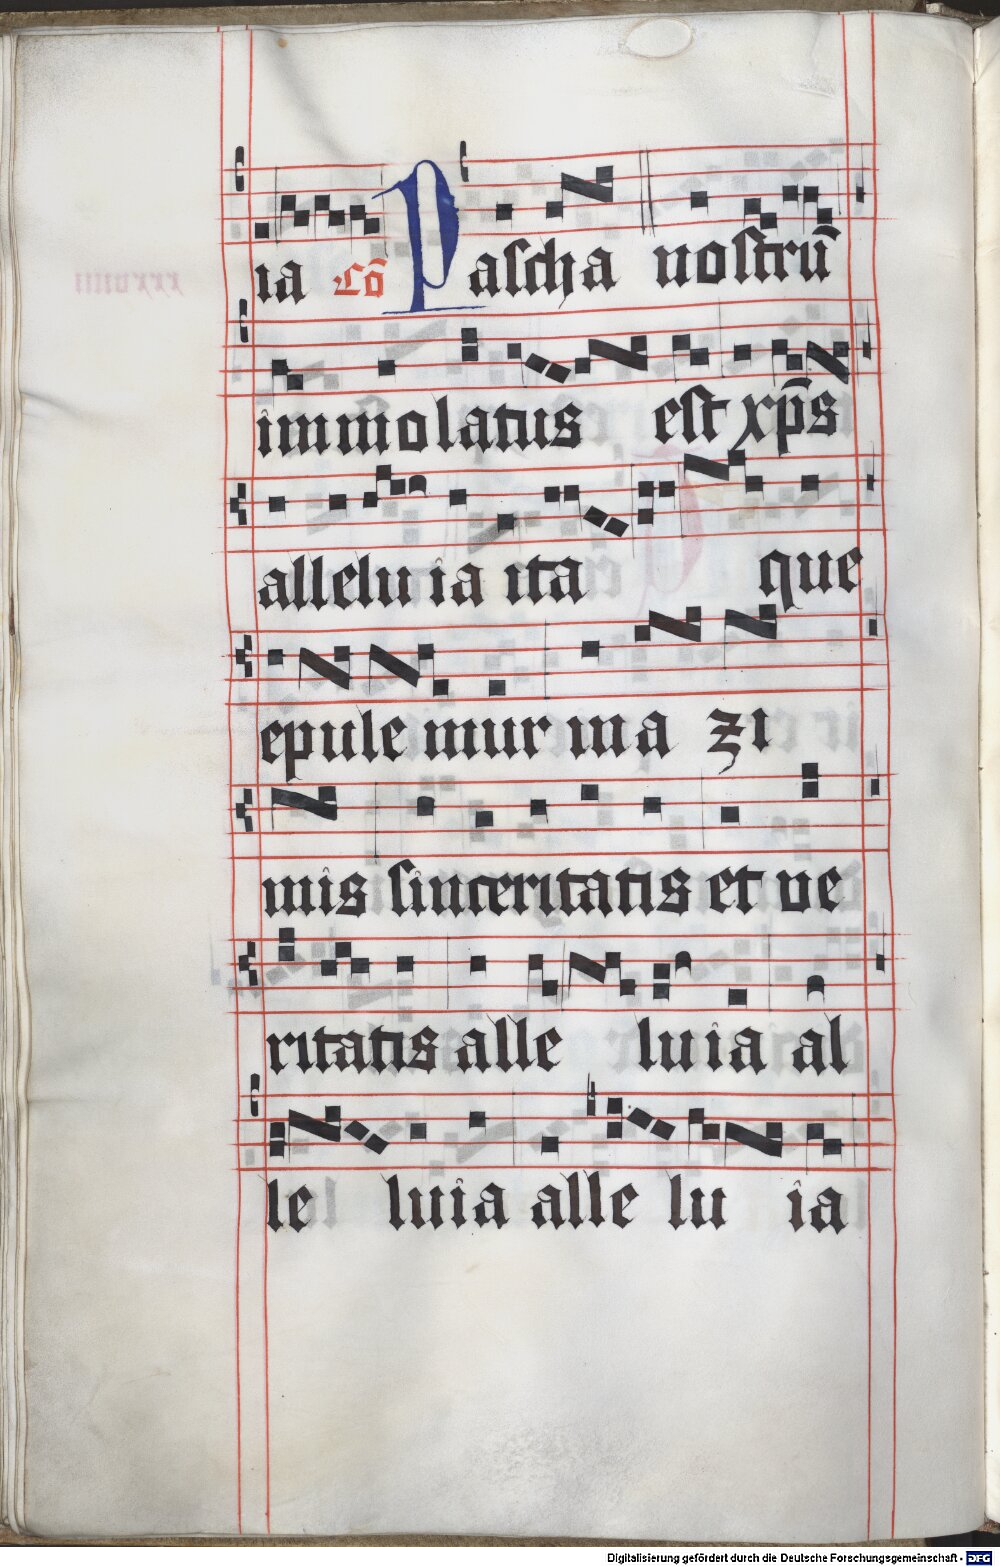 ia Cō Pascha nostrū
immolatus est xp̄s
alleluia ita que
epulemur in a zi
mis sinceritatis et ve
ritatis alle luia al
le luia alle lu ia
Digitalisierung gefördert durch die Deutsche Forschungsgemeinschaft - DFG